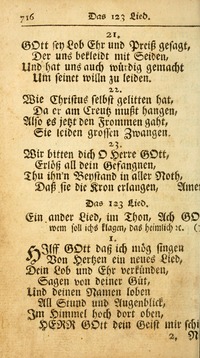 716 Das 123 Lied.
21.
GOtt sey Lob Ehr und Preiß gesagt,
Der uns bekleidt mit Seiden,
Und hat uns auch würdig gemacht
Um seinet willn zu leiden.
22.
Wie Christus selbst gelitten hat,
Da er am Creutz mußt hangen,
Also es jetzt den Frommen gaht,
Sie leiden grossen Zwangen.
23.
Wir bitten dich O Herre GOtt,
Erlöß all dein Gefangnen,
Thu ihn'n Beystand in aller Noth,
Daß sie die Kron erlangen, Amen
Das 123 Lied.
Ein ander Lied, im Thon, Ach GO
wem soll ichs klagen, das heimlich ꝛc. (
1.
HIlff GOtt daß ich mög singen
Von Hertzen ein neues Lied,
Dein Lob und Ehr verkünden,
Sagen von deiner Güt,
Und deinen Namen loben
All Stund und Augenblick,
Im Himmel hoch dort oben,
HERR GOtt dein Geist mir schi
2. N